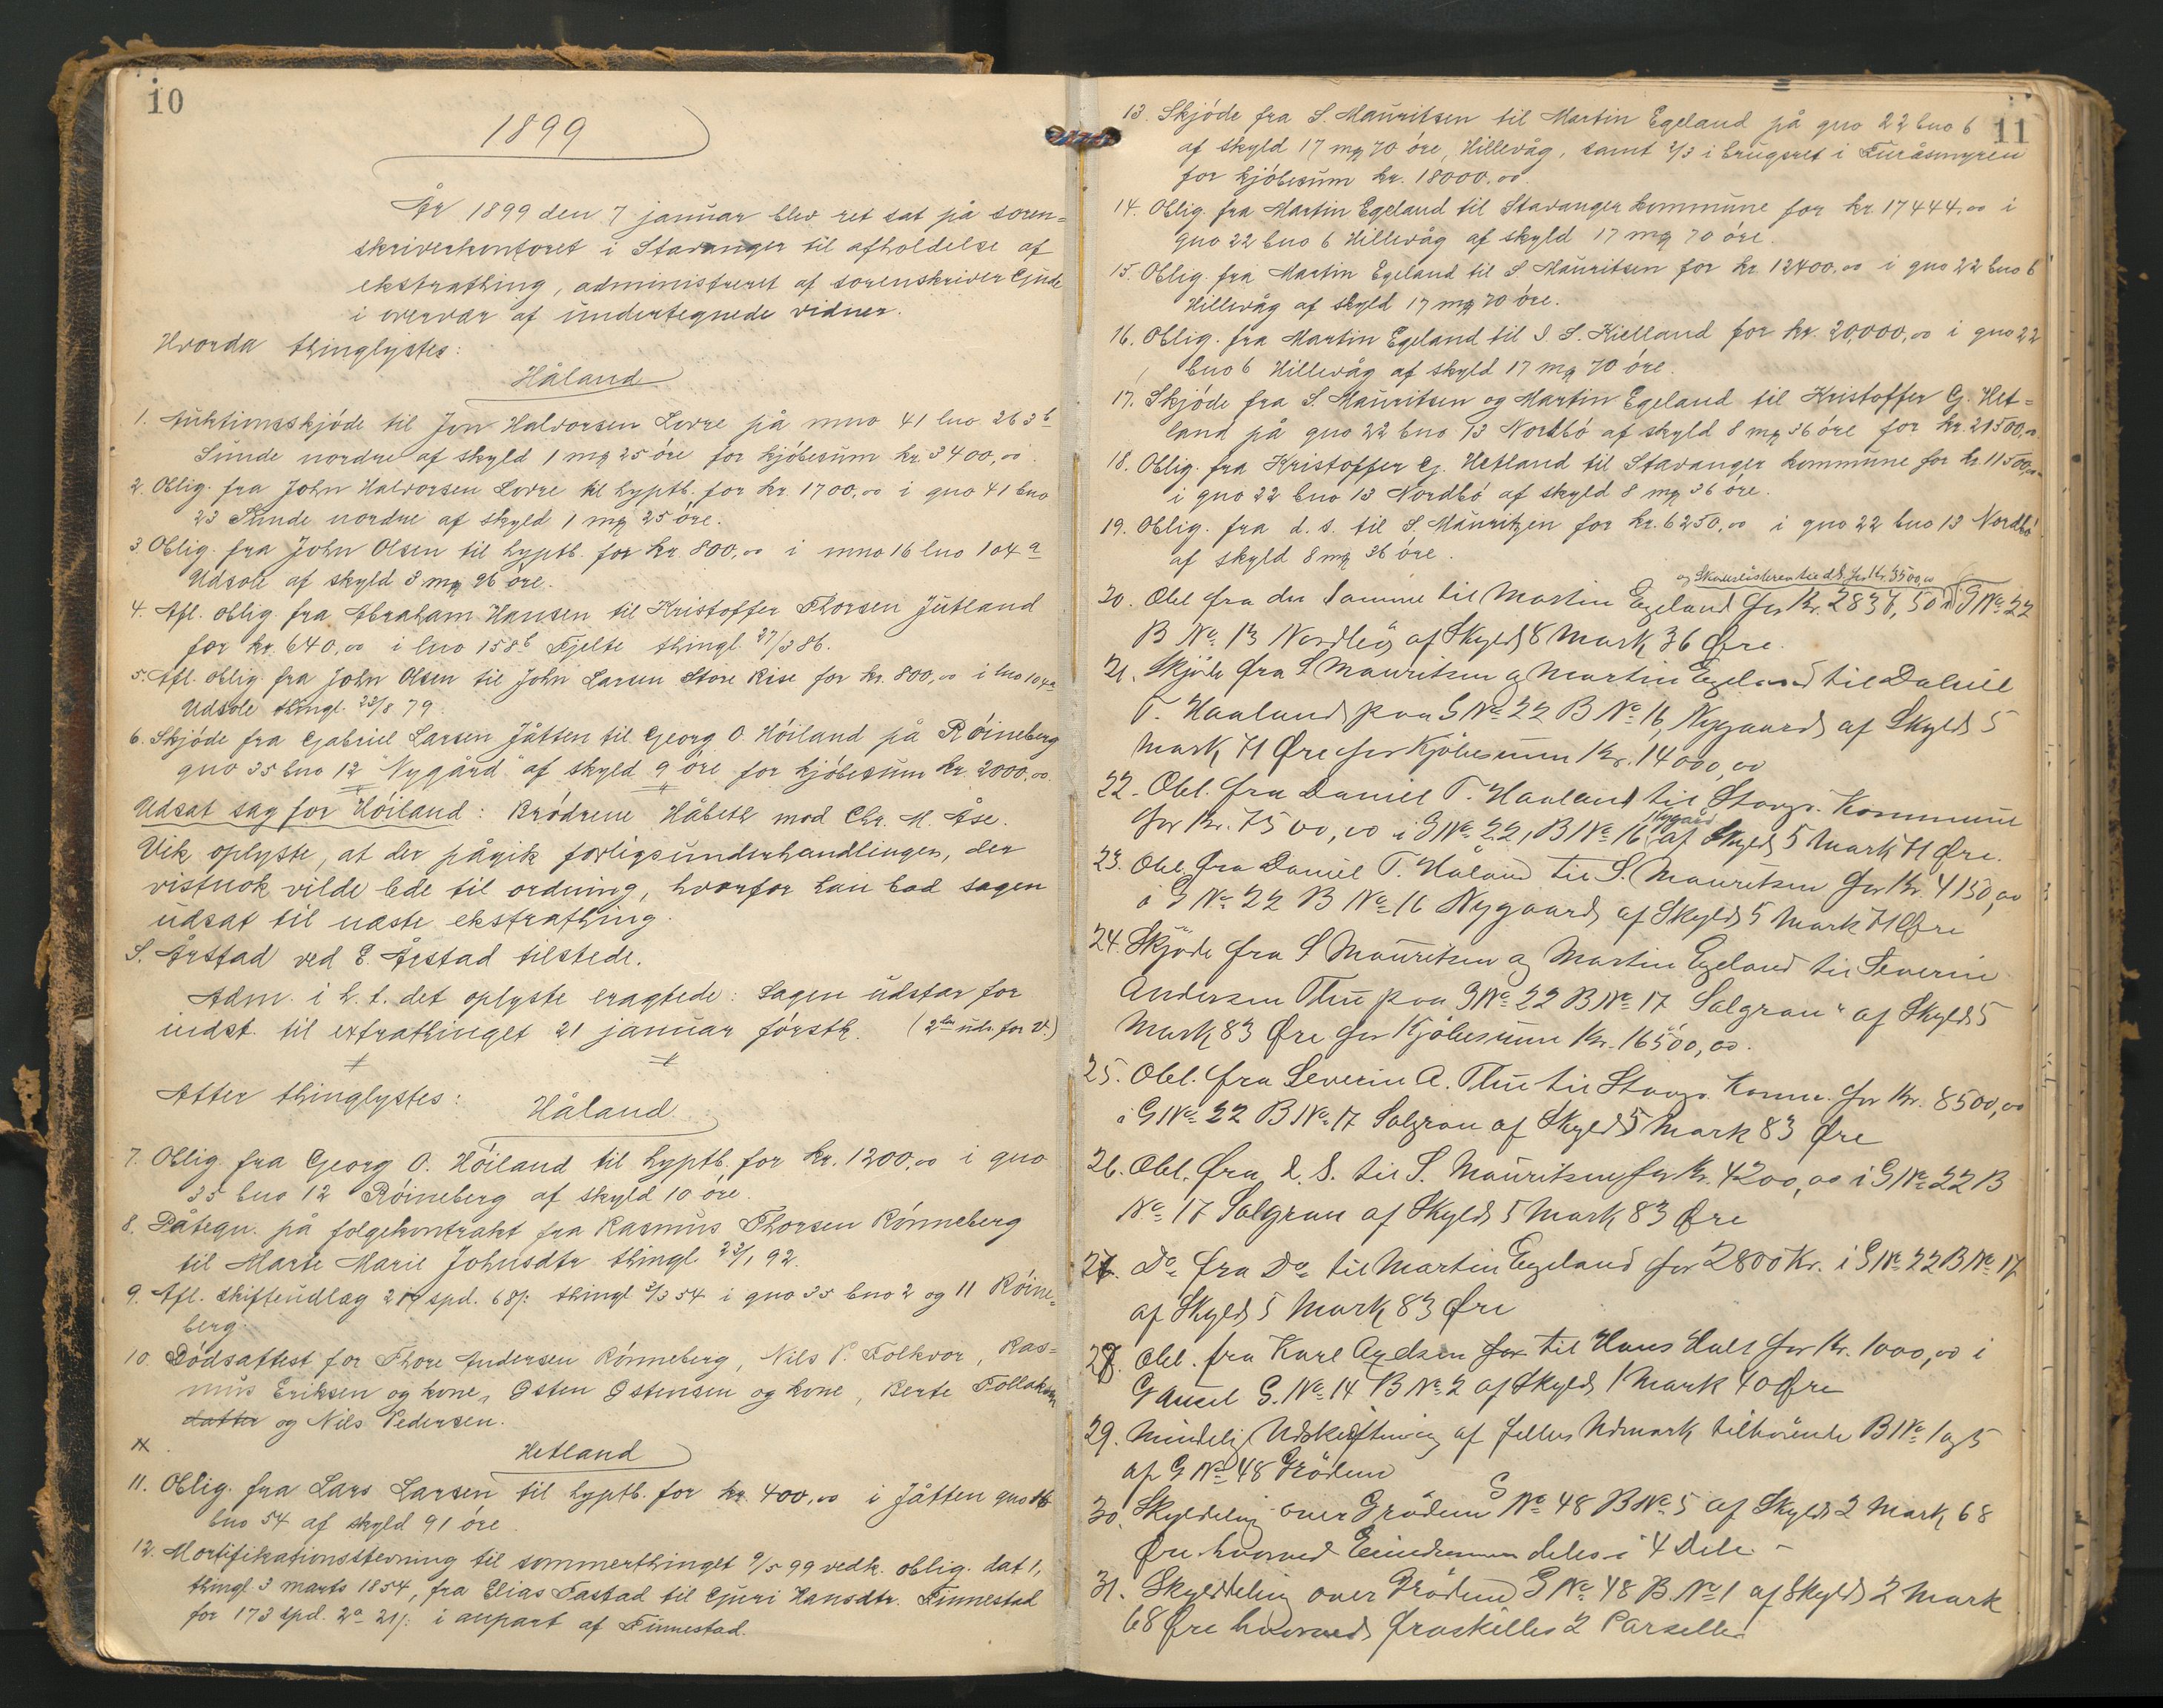 10
1899
År 1899 den 7 januar blev ret sat på soren=
skriverkontoret i Stavanger til afholdelse af
ekstrathing, administreret af sorenskriver Gude
i overvær af undertegnede vidner.
Hvorda thinglystes:
Håland
1. Auktionsskjöde til Jon Halvorsen Lovre på mno 41 lno 263 b
Sunde nordre af skyld 1 mq 25 öre for kjöbesum kr. 3400,00.
2. Oblig. fra John Halvorsen Lovre til hyptb. for kr. 1700,00 i gno 41 bno
23 Sunde nordre af skyld 1 mq 25 öre.
3. Oblig. fra John Olsen til hyptb. for kr. 800,00 i mno 16 lno 104 a
Udsole af skyld 3 mq 96 öre.
4. Afl. oblig. fra Abraham Hansen til Kristoffer Thorsen Jutland
for kr. 640,00 i lno 158 b Fjelte thingl. 27/3 86.
5. Afl. oblig. fra John Olsen til John Larsen Store Rise for kr. 800,00 i lno 104a
Udsole thingl. 22/8 79.
6. Skjöde fra Gabriel Larsen Jåtten til Georg O. Höiland på Röineberg
gno 35 bno 12 "Nygård" af skyld 9 öre for kjöbesum kr. 2000,00.
Udsat sag for Höiland: Brödrene Håbeth mod Chr. M. Åse.
Vik oplyste, at der pågik forligsunderhandlinger, der
vistnok vilde lede til ordning, hvorfor han bad sagen
udsat til næste ekstrathing.
S. Årstad ved E. Årstad tilstede.
Adm. i h. t. det oplyste eragtede: Sagen udstår for
indst. til extrathinget 21 januar förstk. (2den uds. for V.)
Atter thinglystes:
Håland
7. Oblig. fra Georg O. Höiland til hyptb. for kr. 1200,00 i gno
35 bno 12 Röineberg af skyld 10 öre.
8. Påtegn. på folgekontrakt fra Rasmus Thorsen Rönneberg
til Marte Marie Johnsdtr. thingl. 23/1 92.
9. Afl. skifteudlag 219 spd. 68 /: thingl 3/3 54 i gno 35 bno 2 og 11 Röine=
berg.
10. Dödsattest for Thore Andersen Rönneberg, Nils P. Folkvor, Ras=
mus Eriksen og kone, Osten Ostensen og kone, Berte Tollaksen
datter og Nils Pedersen.
Hetland
11. Oblig. fra Lars Larsen til hyptb. for kr. 400,00 i Jåtten gno 16
bno 54 af skyld 91 öre.
12. Mortifikationsstevning til sommerthinget 9/5 99 vedk. oblig. dat 1,
thingl. 3 marts 1854, fra Elias Tastad til Guri Hansdtr. Finnestad
for 173 spd. 2a 21 /: i anpart af Finnestad.
11
13. Skjöde fra S. Mauritsen til Martin Egeland på gno 22 bno 6
af skyld 17 mq 70 öre, Hillevåg, samt 2/3 i brugsret i Furåsmyren
for kjöbesum kr. 18000,00.
14. Oblig. fra Martin Egeland til Stavanger kommune for kr. 17444,00 i
gno 22 bno 6 Hillevåg af skyld 17 mq 70 öre.
15. Oblig. fra Martin Egeland til S Mauritsen for kr. 12400,00 i gno 22 bno 6
Hillevåg af skyld 17 mq 70 öre.
16. Oblig. fra Martin Egeland til I. S. Kielland for kr. 20,000,00 i gno 22
bno 6 Hillevåg af skyld 17 mq 70 öre.
17. Skjöde fra S. Mauritsen og Martin Egeland til Kristoffer G. Het=
land på gno 22 bno 13 Nordbö af skyld 8 mq 36 öre for kr. 21500,00.
18. Oblig. fra Kristoffer G. Hetland til Stavanger kommune for kr. 11500,00
i gno 22 bno 13 Nordbö af skyld 8 mq 36 öre.
19. Oblig. fra d. s. til S Mauritzen for kr. 6250,00 i gno 22 bno 13 Nordbö
af skyld 8 mq 36 öre.
for Kr. 3500,00
20. Obl fra den samme til Martin Egeland for Kr. 2837,50 i G No 22
B No 13 Nordbö af Skyld 8 Mark 36 Øre.
21. Skjöde fra S Mauritsen og Martin Egeland til Daniel
T. Haaland paa G No 22 B No 16, Nygaard af Skyld 5
Mark 71 Øre for Kjöbesum Kr. 14000,00
22. Obl. fra Daniel T. Haaland til Stavgr. Kommune
for Kr. 7500,00 i G No 22, B No 16 Nygård af Skyld 5 Mark 71 Øre.
23. Obl. fra Daniel T. Håland til S. Mauritsen for Kr. 4150,00
i G No 22 B No 16 Nygaard af Skyld 5 Mark 71 Øre
24. Skjöde fra S Mauritsen og Martin Egeland til Severin
Andersen Thu paa G No 22 B No 17 Solgran" af Skyld 5
Mark 83 Øre for Kjöbesum Kr. 16500,00.
25. Obl. fra Severin A. Thu til Stavgr. Komm. for Kr. 8500,00
i G No 22 B No 17 Solgran af Skyld 5 Mark 83 Øre
26. Obl. fra d. S. til S. Mauritsen for Kr. 4200,00 i G No 22 B
No 17 Solgran af Skyld 5 Mark 83 Øre
27. Do fra Do til Martin Egeland for 2800 Kr. i G No 22 B No 17
af Skyld 5 Mark 83 Øre
28. Obl. fra Karl Axelsen for til Hans Hult for Kr. 1000,00 i
Gausel G. No 14 B No 2 af Skyld 1 Mark 40 Øre
29. Mindelig Udskiftning af felles Udmark tilhörende B No 1 og 5
af G No 48 Grödem
30. Skylddeling over Grödem G No 48 B No 5 af Skyld 2 Mark 68
Øre hvorved Eiendommen deles i 4 Dele. -
31. Skylddeling over Grödem G No 48 B. No 1 af Skyld 2 Mark
68 Øre hvorved fraskilles 2 Parseller